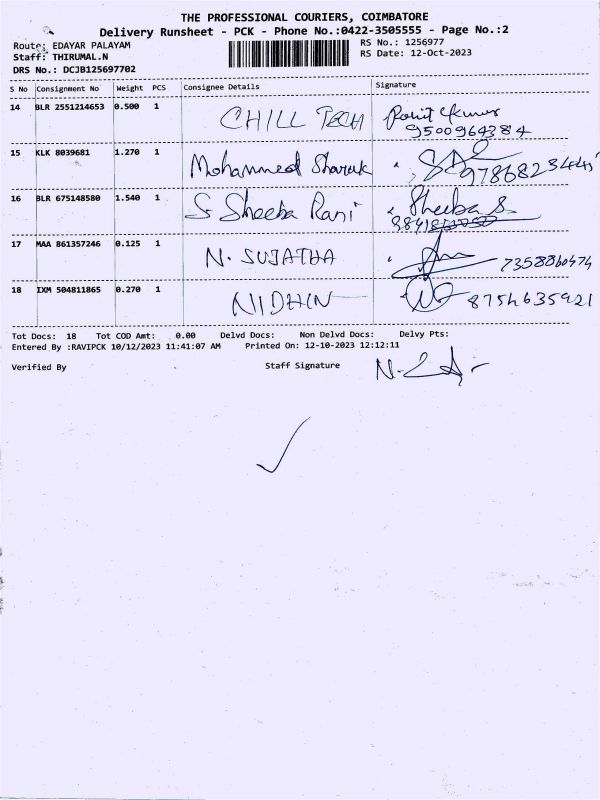 THE PROFESSIONAL COURIERS, COIMBATORE
Delivery Runsheet - PCK - Phone No.:0422-3505555 - Page No.:2
Route: EDAYAR PALAYAM
RS No.: 1256977
Staff: THIRUMAL.N
RS Date: 12-Oct-2023
DRS No.: DCJB125697702
S No Consignment No Weight PCS Consignee Details Signature
14 BLR 2551214653 0.500 1 CHILL TECH Rohit Kumar
9500964384
15 KLK 8039681 1.270 1 Mohammed Sharuk
16 BLR 675148580 1.540 1 S Sheeba Rani Sheeba S
17 MAA 861357246 0.125 1 N. SUJATHA 7358860474
18 IXM 504811865 0.270 1 NIDHIN 8754635921
Tot Docs: 18 Tot COD Amt: 0.00 Delvd Docs: Non Delvd Docs: Delvy Pts:
Entered By :RAVIPCK 10/12/2023 11:41:07 AM Printed On: 12-10-2023 12:12:11
Verified By Staff Signature